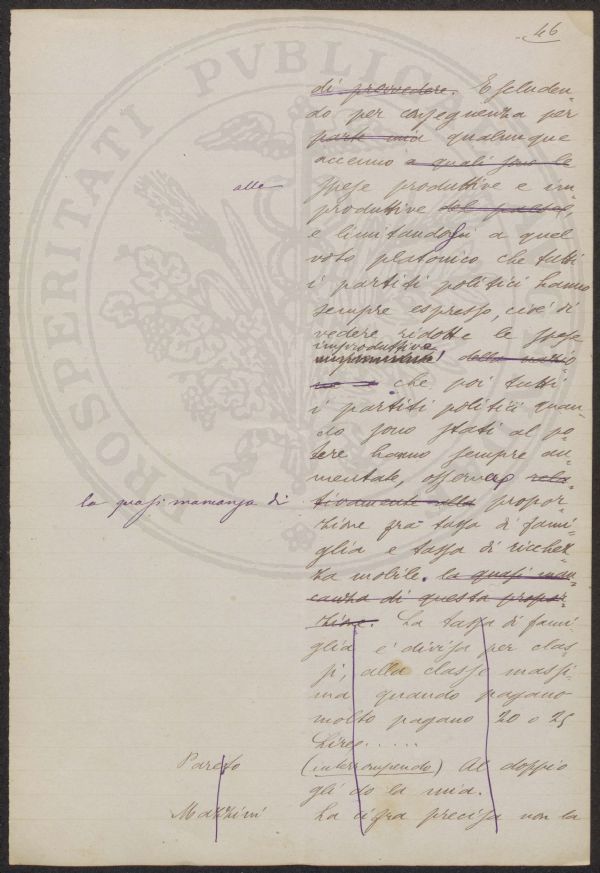 46
di provvedere. Escluden-
do per conseguenza per
parte mia qualunque
accenno a quali sono le
alle
spese produttive e im
produttive del paese,
e limitandosi a quel
voto platonico che tutti
i partiti politici hanno
sempre espresso, cioè di
vedere ridotte le spese
improduttive
che poi tutti
i partiti politici quan-
do sono stati al po-
tere hanno sempre au-
mentate, osservo rela-
la quasi mancanza di
tivamente alla propor-
zione fra tassa di fami-
glia e tassa di ricchez-
za mobile. la quasi man-
canza di questa propor-
zione. La tassa di fami-
glia è divisa per clas-
si, alla classe massi-
ma quando pagano
molto pagano 20 o 25
Lire.....
Pareto
(interrompendo) Al doppio
gli do la mia.
Mazzini
La cifra precisa non la
PROSPERITATI PVBLICAE